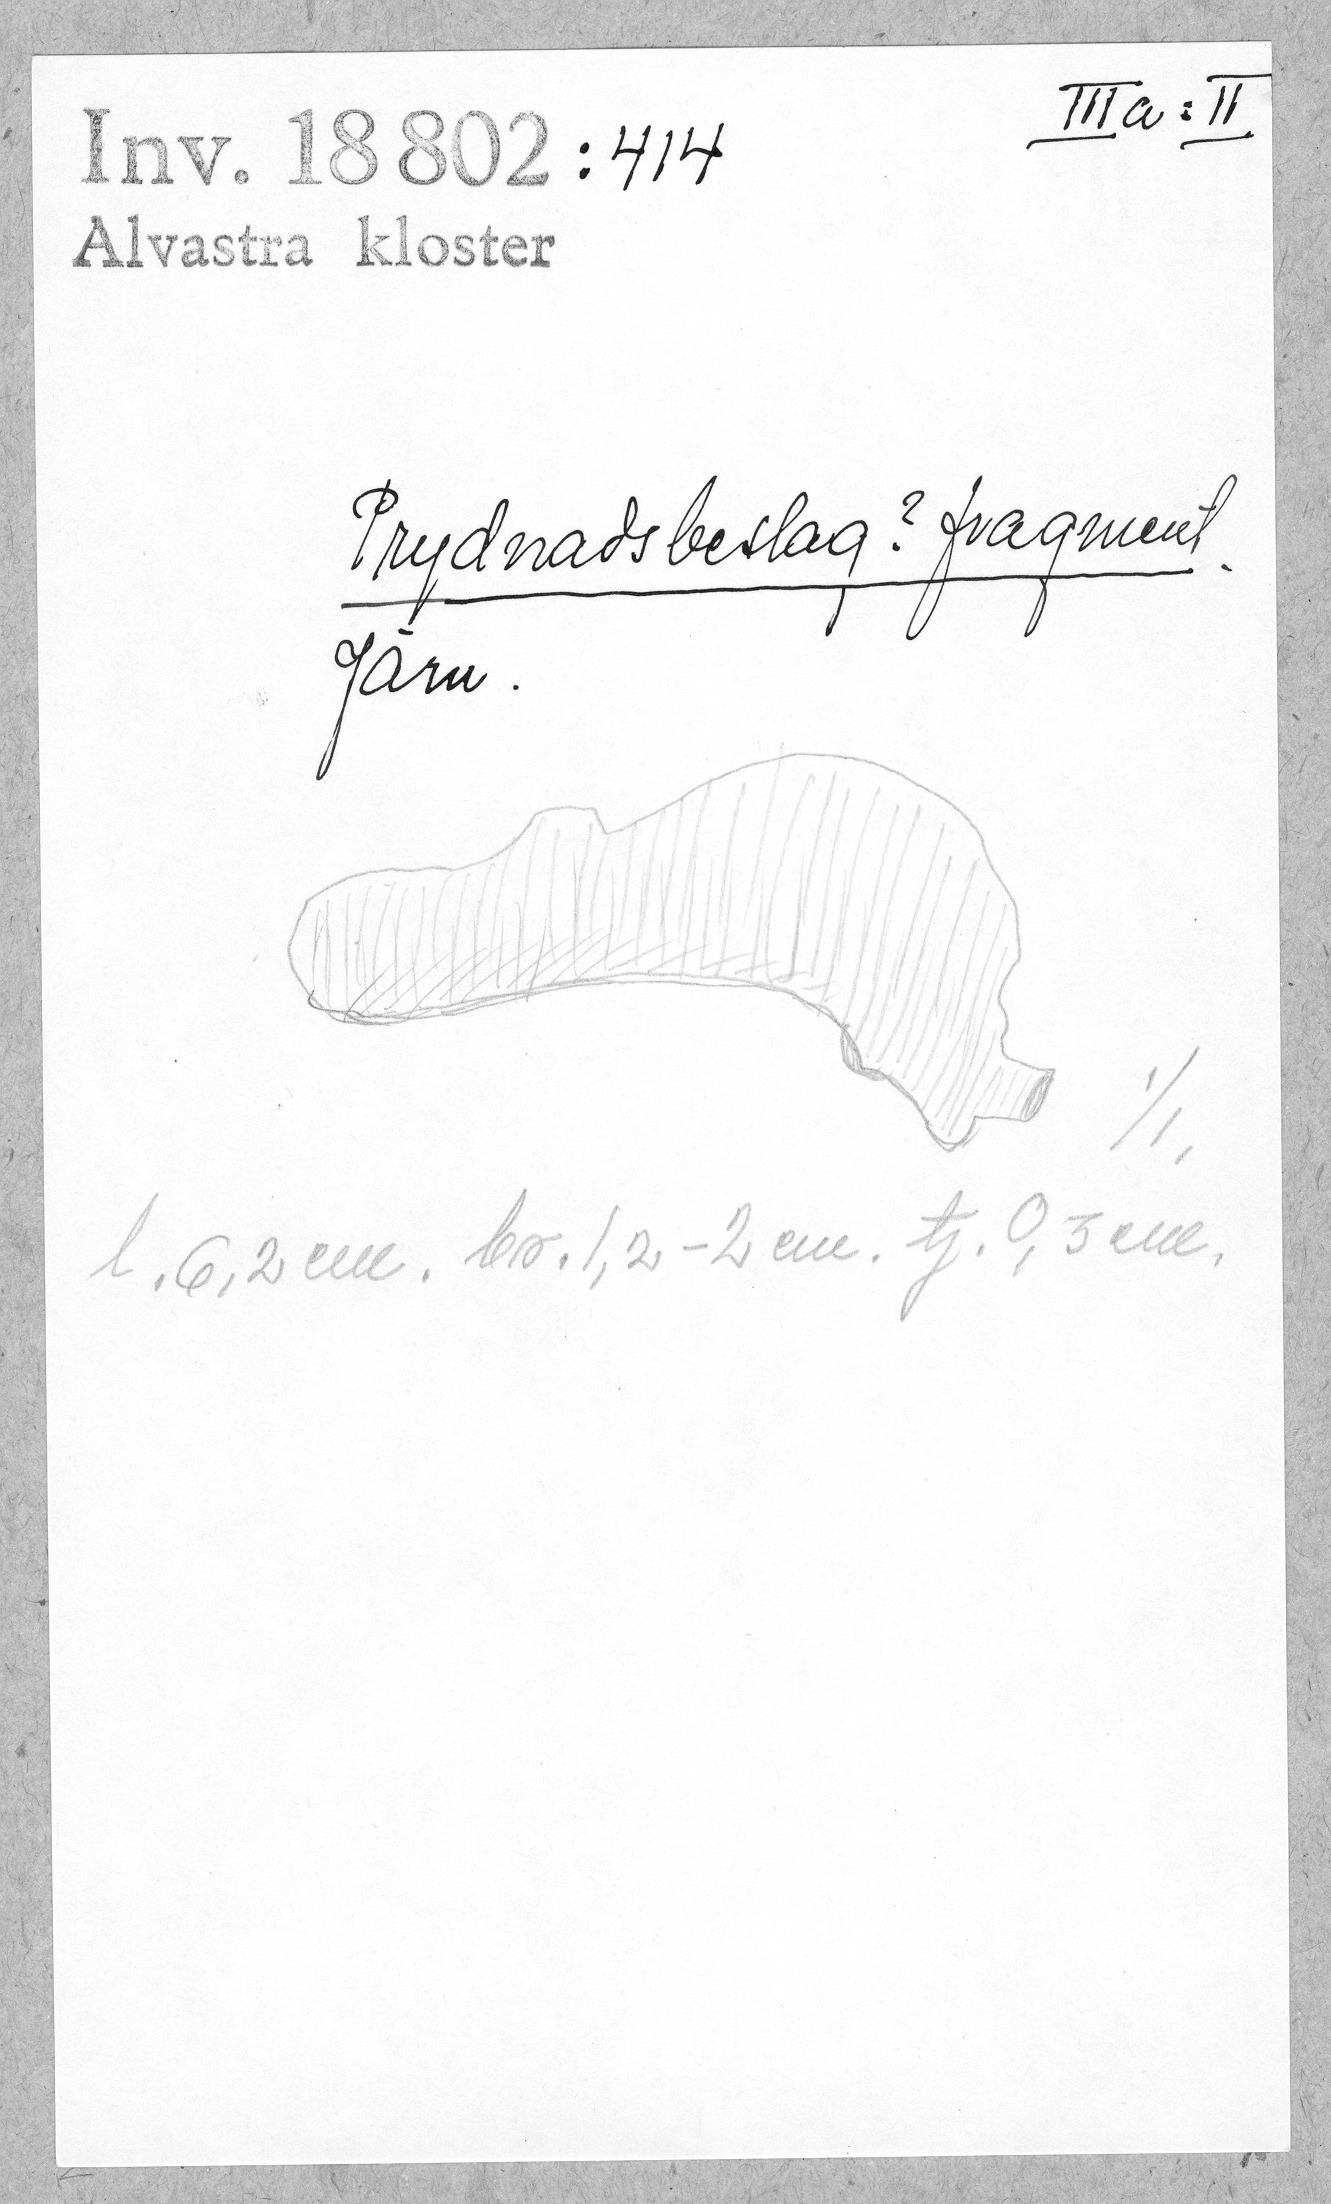 Inv. 18 802 :414
IIIa:II
Alvastra kloster
Prydnadsbeslag? fragment.
Järn.
1/1.
l. 6,2 cm. br. 1,2-2 cm. tj. 0,3 cm.